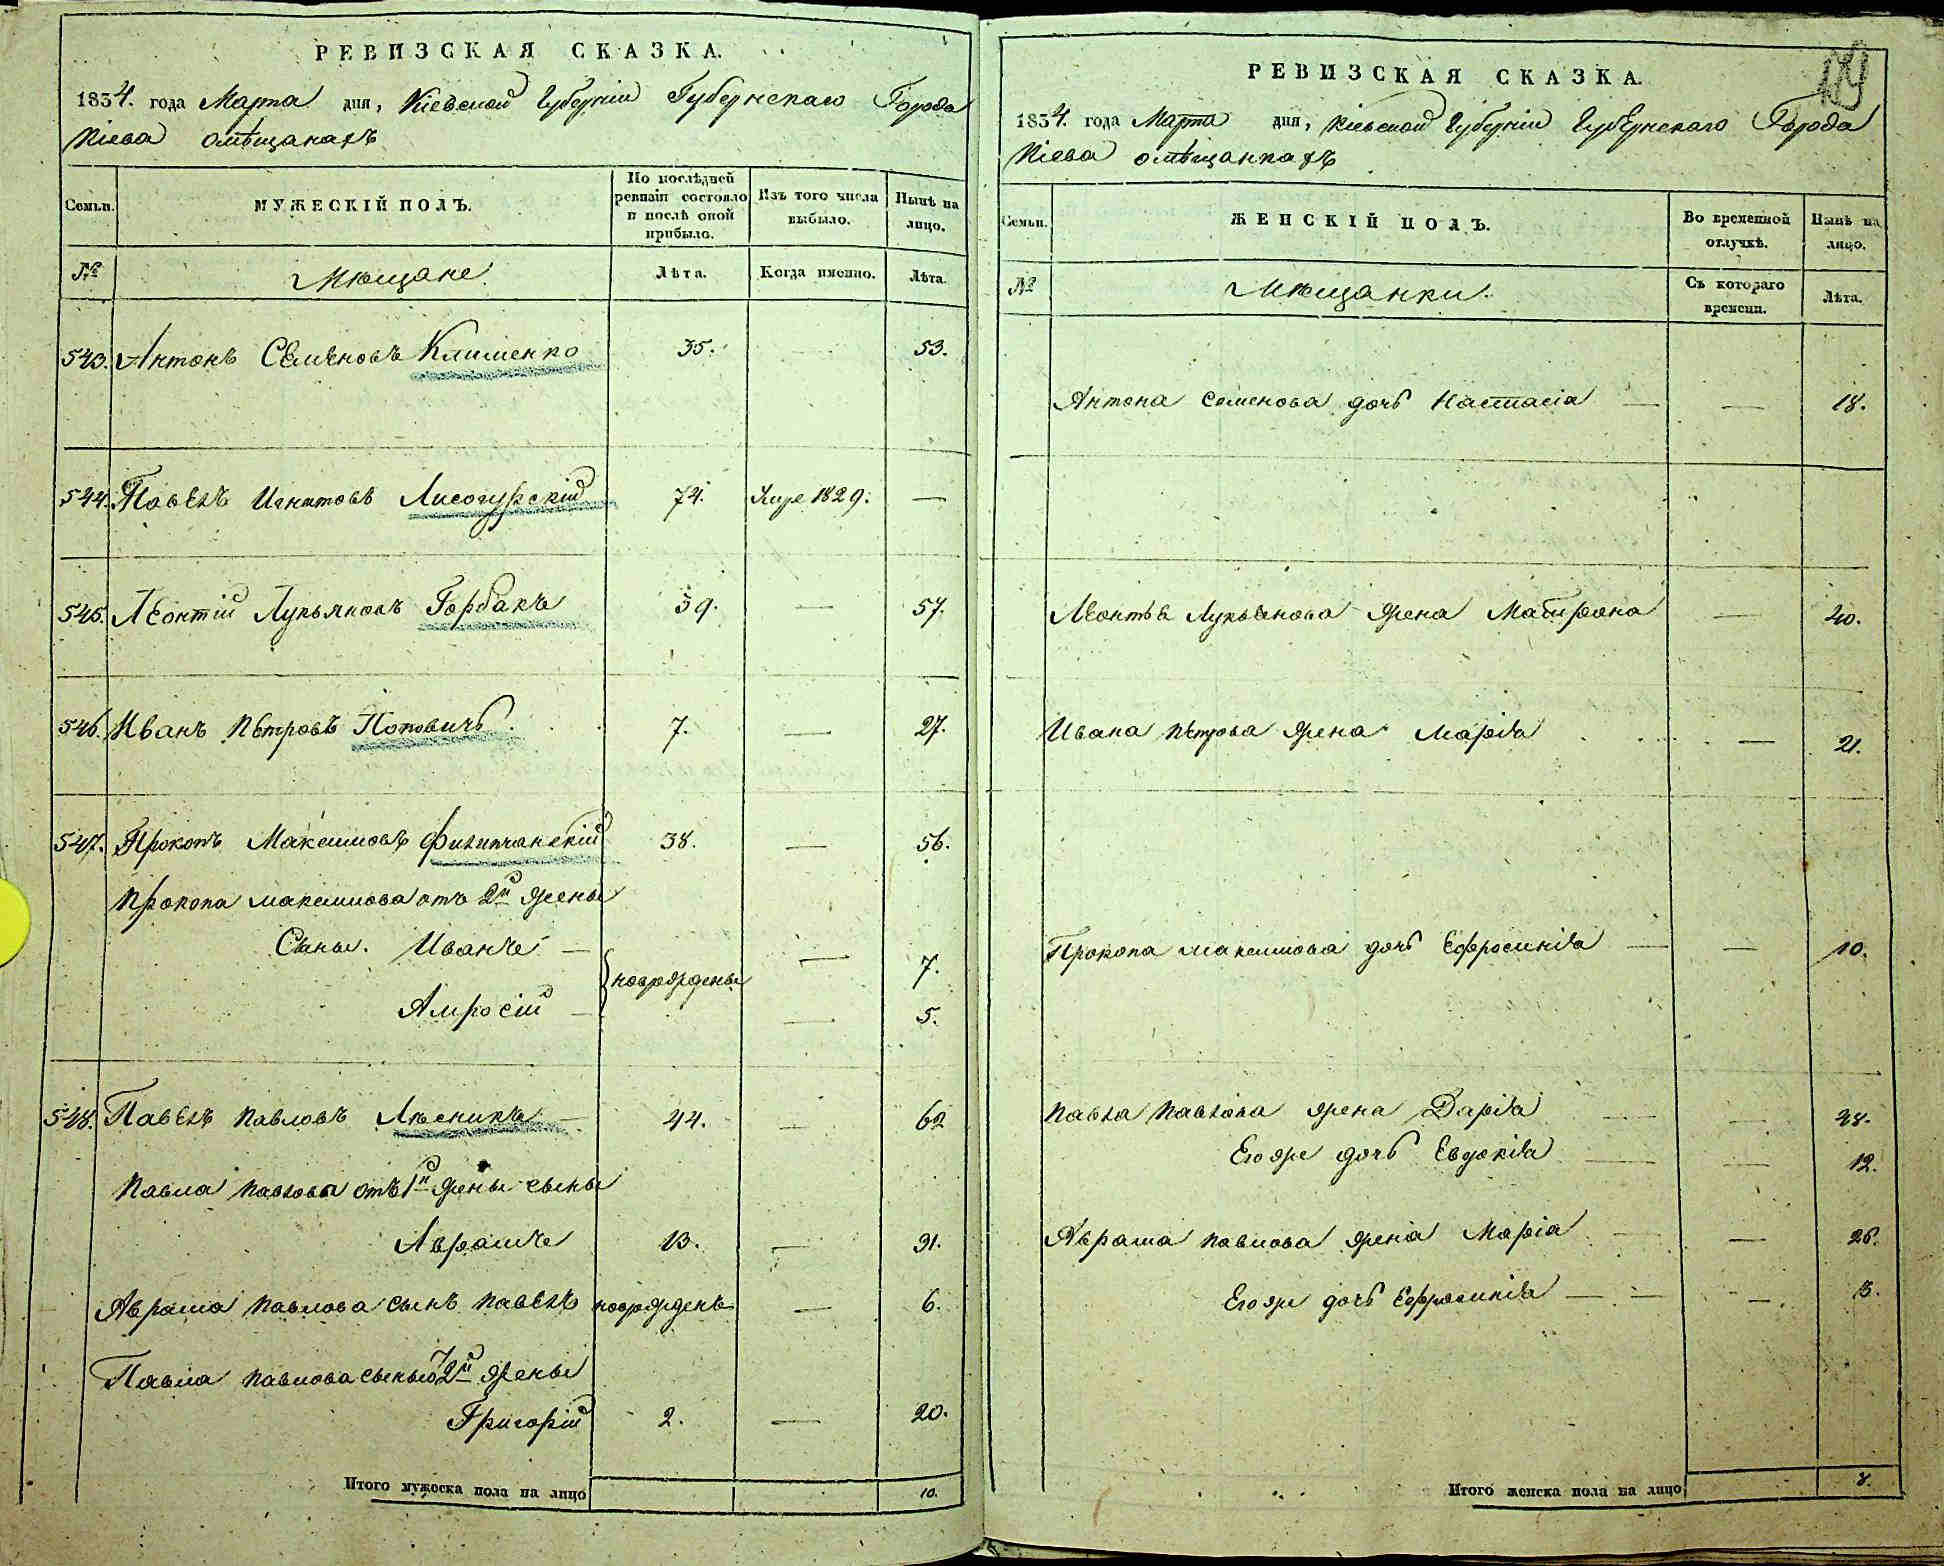 РЕВИЗСКАЯ СКАЗКА.
1834. года Марта дня, Кіевской Губерніи Губернскаго Города
Кіева омѣщанахъ
Семьи.
МУЖЕСКІЙ ПОЛЪ.
По послѣдней ревизіи состояло и послѣ оной прибыло.
Изъ того числа выбыло.
Нынѣ на лицо.
№
Мѣщане.
Лѣта.
Когда именно.
Лѣта.
543. Антонъ Семеновъ Клименко 35. 53.
544. Павелъ Игнатовъ Лисогурскій 74. Умре 1829. —
545. Леонтій Лукьяновъ Горбакъ 39. — 57.
546. Иванъ Петровъ Поповичъ. 7. — 27.
547. Прокопъ Максимовъ 38. — 56.
Прокопа максимова отъ 2й жены
Сыны. Иванъ — новорождены — 7.
Амросій — — 5.
548. Павелъ Павловъ Лѣсникъ — 44. — 62
Павла Павлова отъ 1й жены сыны
Аврамъ 13. — 31.
Аврама Павлова сынъ Павелъ новорожденъ — 6.
Павла Павлова сыны о 2й жены
Григорій 2. — 20.
Итого мужеска пола на лицо 10.
119
РЕВИЗСКАЯ СКАЗКА.
1834. года Марта дня, Кіевской Губерніи Губернскаго Города
Кіева омѣщанкахъ
Семьи.
ЖЕНСКІЙ ПОЛЪ.
Во временной отлучкѣ.
Нынѣ на лицо.
№
Мѣщанки.
Съ котораго времени.
Лѣта.
Антона Семенова дочь Настасія — — 18.
Леонтья Лукьянова жена Матрона — 40.
Ивана Петрова жена Марія — 21.
Прокопа максимова дочь Ефросинія — — 10.
Павла Павлова жена Дарія — — 48.
Его же дочь Евдокія — — 12.
Аврама Павлова жена Марія — — 26.
Его же дочь Ефросинія — — — 3.
Итого женска пола на лицо 8.